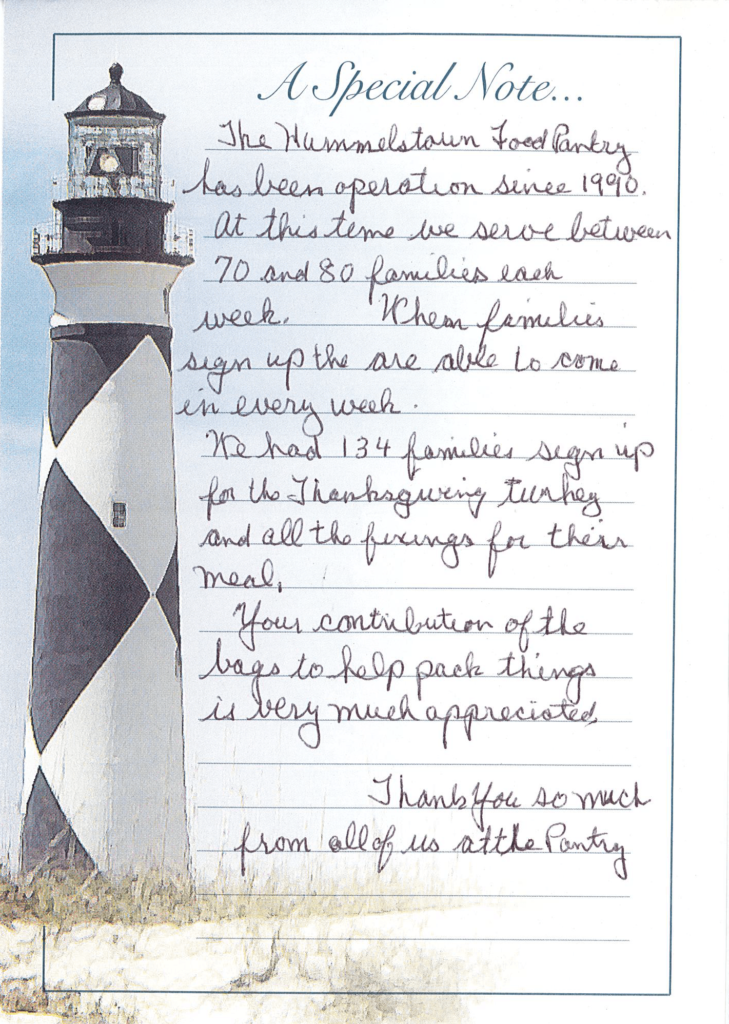 A Special Note...
The Hummelstown Food Pantry
has been operation since 1990.
At this time we serve between
70 and 80 families each
week. When families
sign up the are able to come
in every week.
We had 134 families sign up
for the Thanksgiving turkey
and all the fixings for their
meal.
Your contribution of the
bags to help pack things
is very much appreciated.
Thank You so much
from all of us at the Pantry